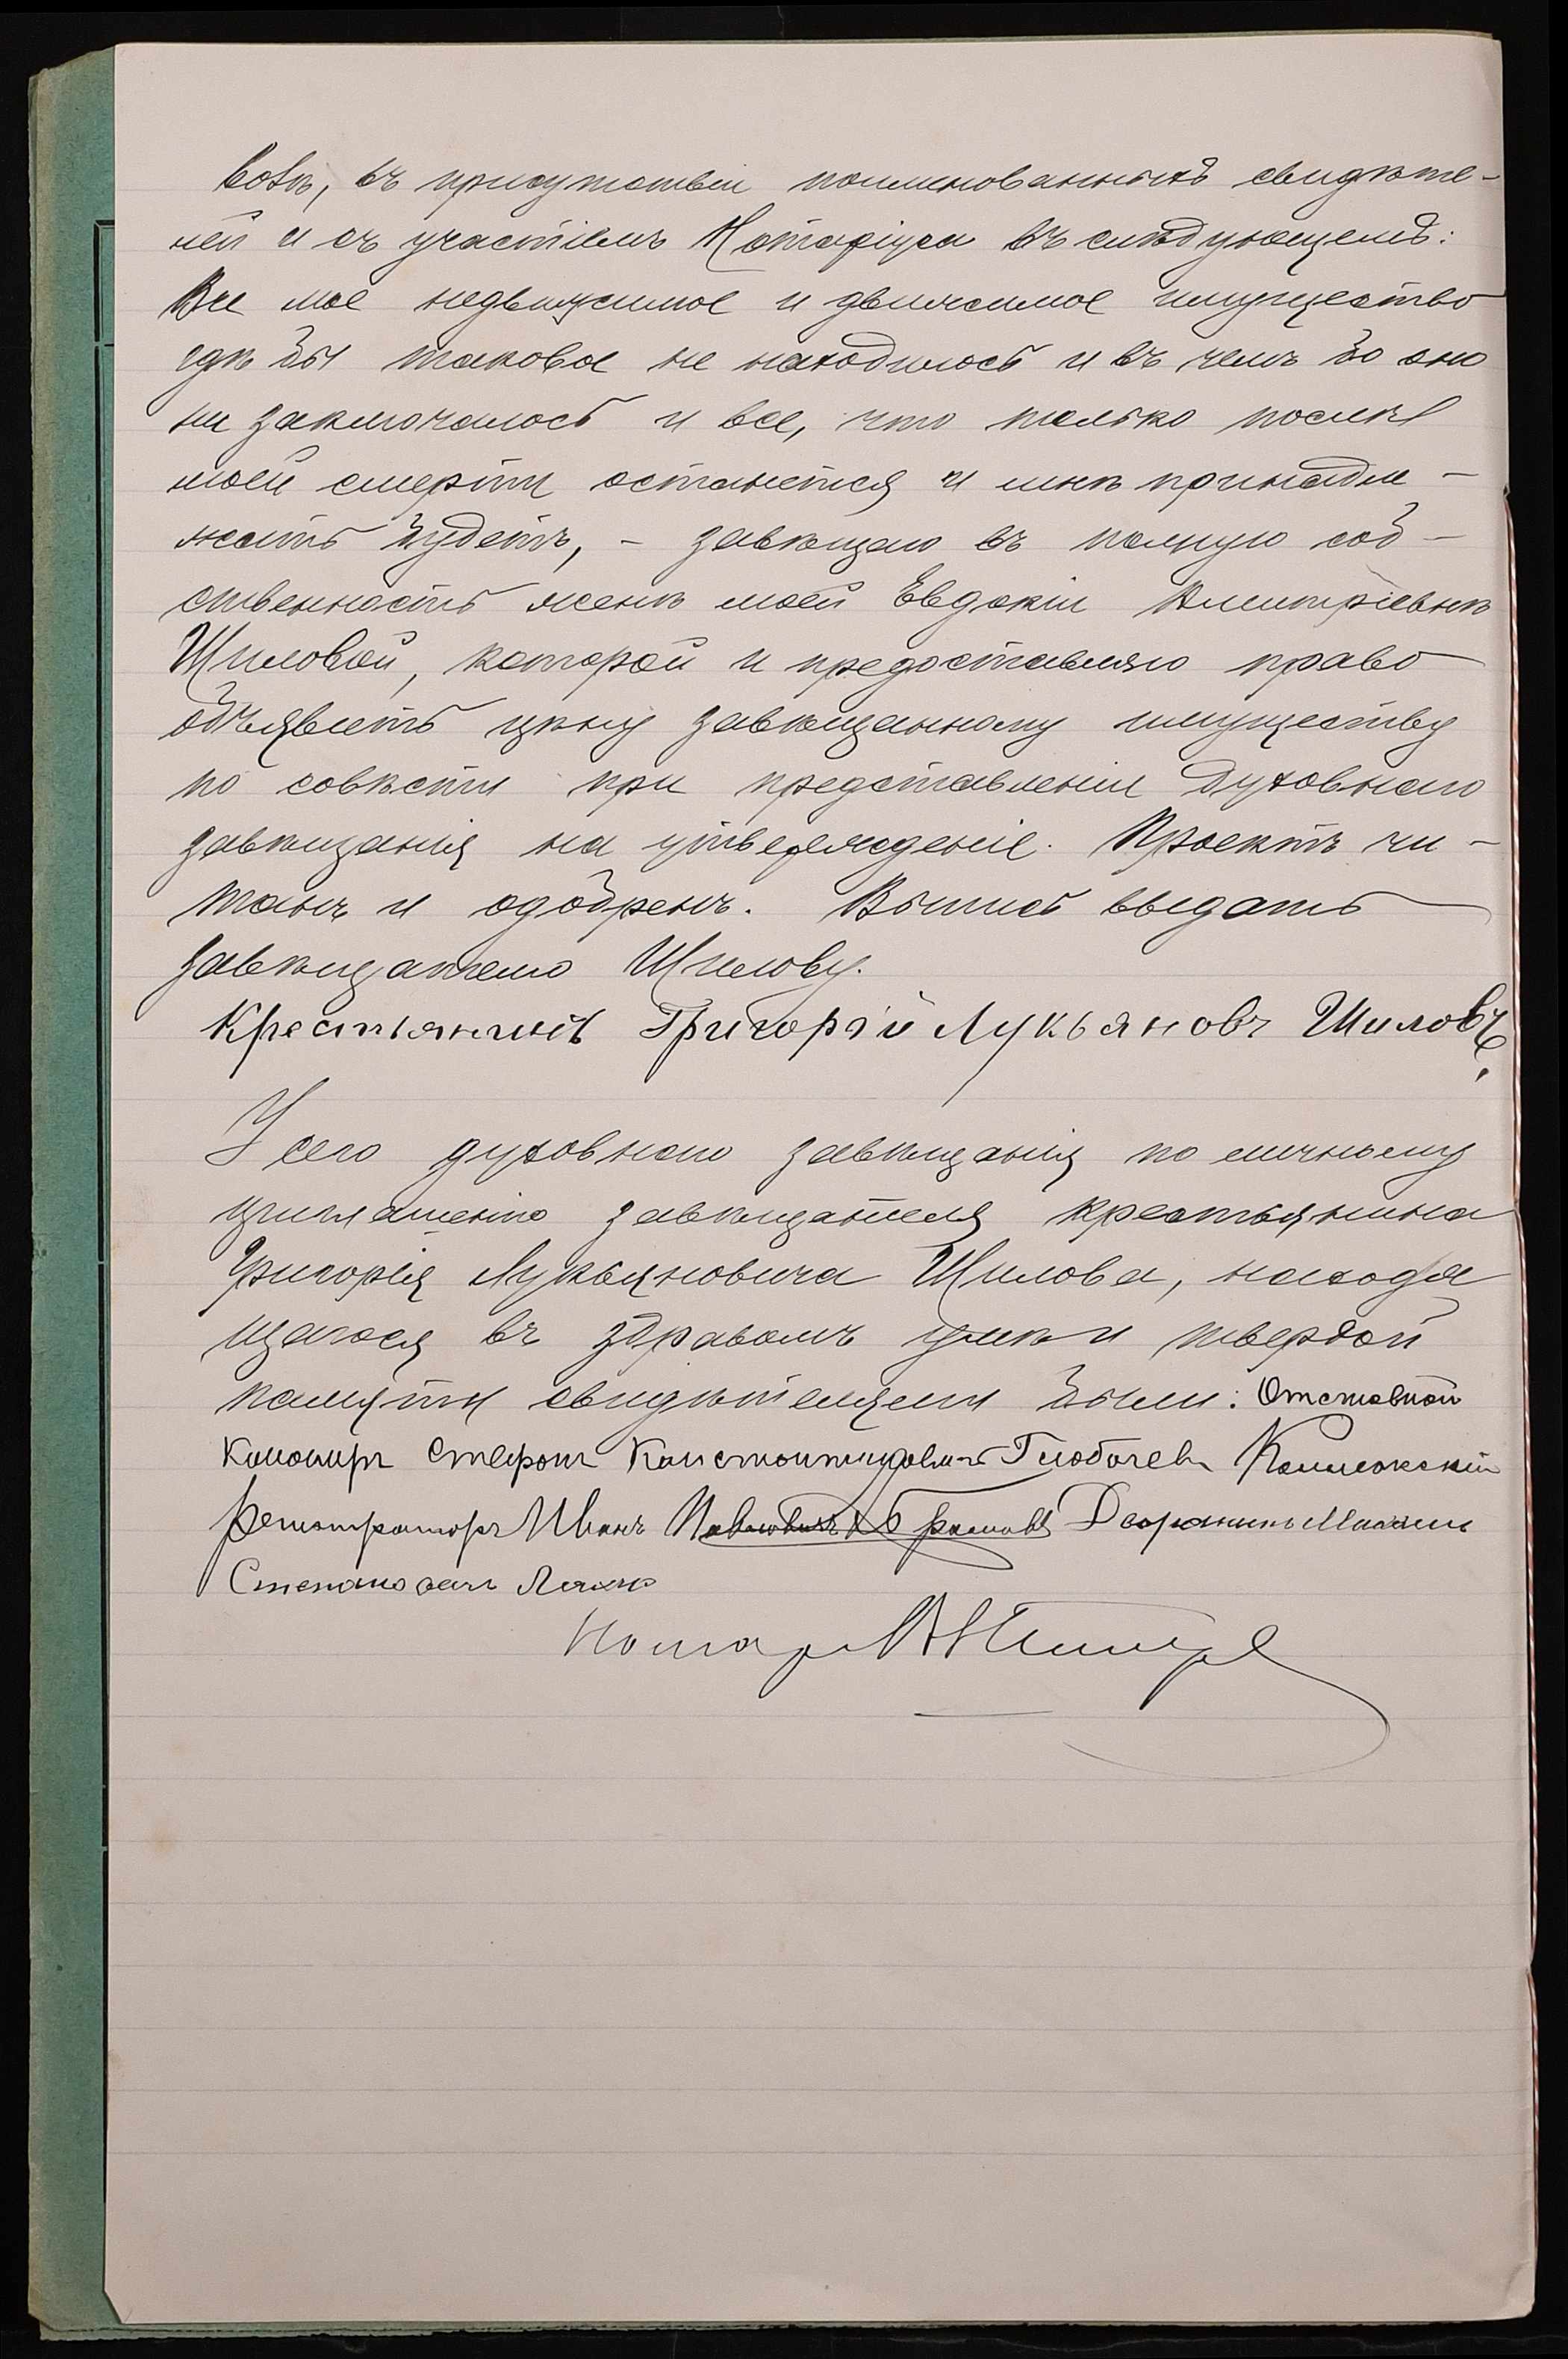 воѣ, въ присутствіи поименованныхъ свидѣте-
лей и съ участіемъ Нотаріуса въ слѣдующемъ:
Все мое недвижимое и движимое имущество
гдѣ бы таковое не находилось и въ чемъ бо оно
ни заключалось и все, что только послѣ
моей смерти останется и мнѣ принадле-
жать будетъ, – завѣщаю въ полную соб-
ственность женѣ моей Евдокіи Дмитріевнѣ
Шиловой, которой и предоставляю право
объявить цѣну завѣщанному имуществу
по совѣсти при представленіи духовнаго
завѣщанія на утвержденіе. Проектъ чи-
танъ и одобренъ. Выпись выдать
завѣщателю Шилову.
Крестьянинъ Григорій Лукьяновъ Шиловъ.
У сего духовнаго завѣщанія по личному
приглашенію завѣщателя крестьянина
Григорія Лукьяновича Шилова, находя
щагося въ здравомъ умѣ и твердой
памяти свидѣтелями были: Отставной
Канониръ Стефанъ Константиновичъ Коллежскій
регистраторъ Иванъ Павловичъ Дворянинъ
Степановичъ
Нотаріусъ